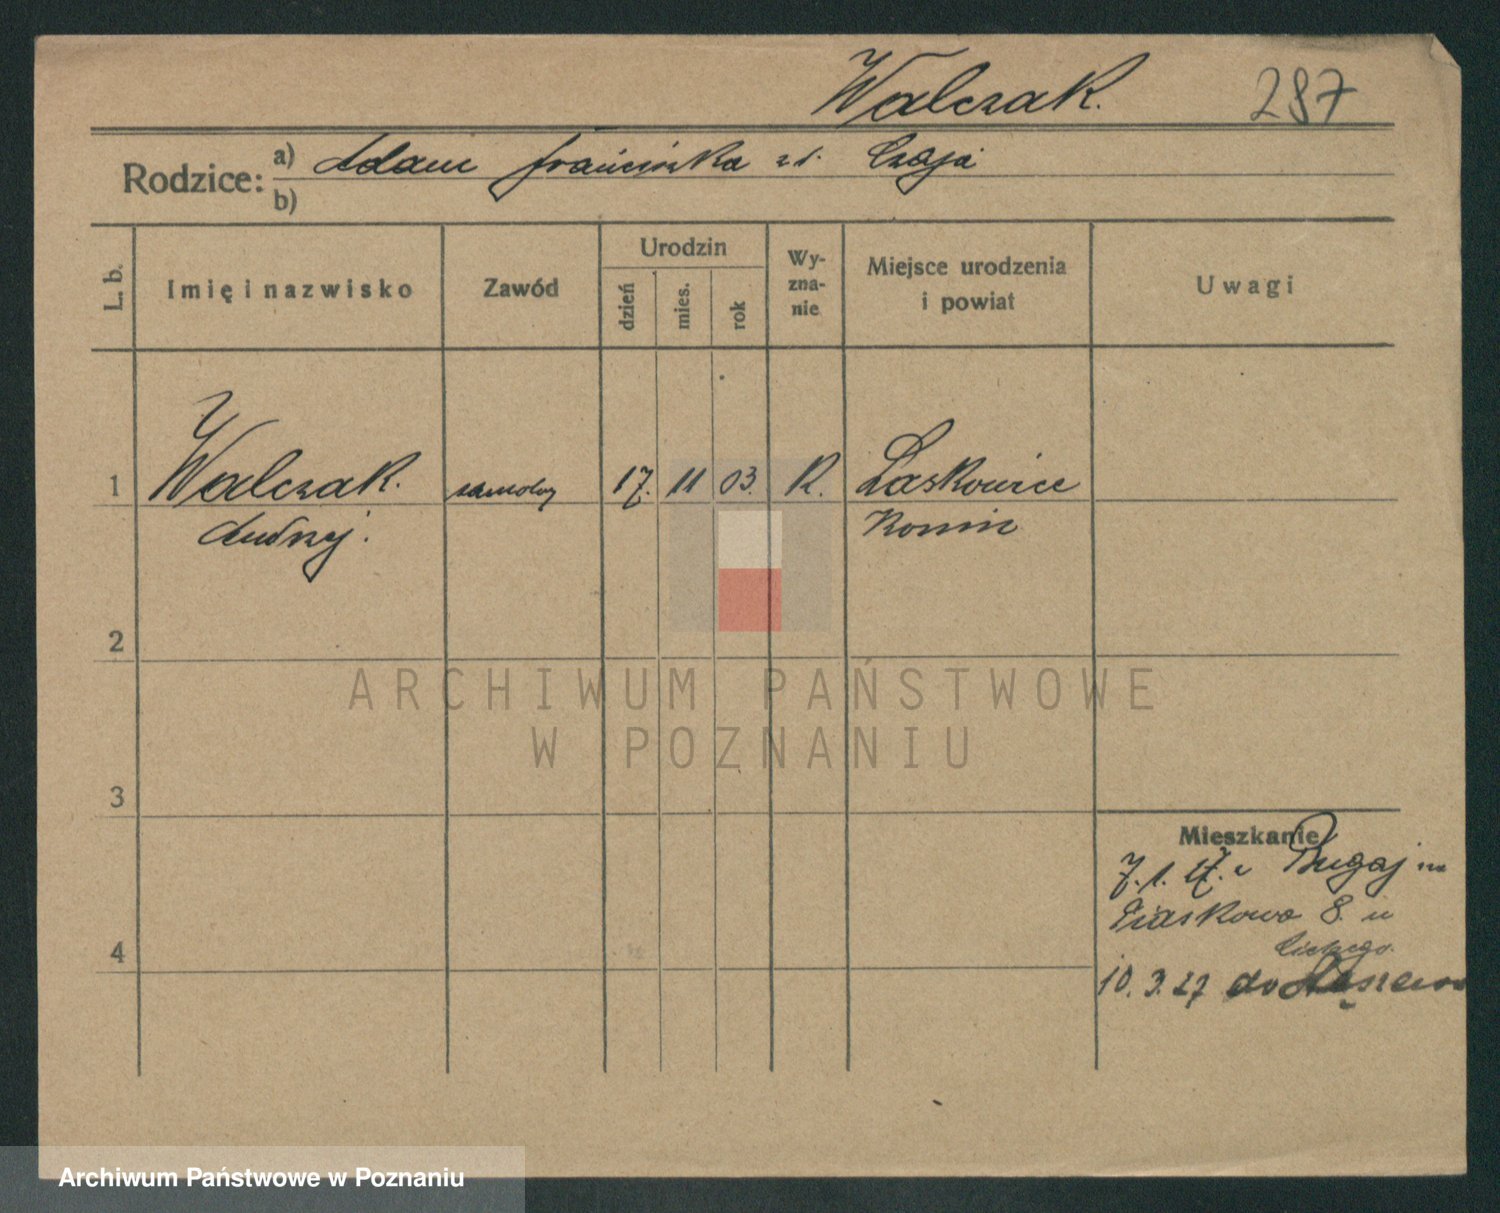 Walczak. 287
Rodzice: a) Adam Franciszka z d. Czaja
b)
L. b.
Imię i nazwisko
Zawód
Urodzin
dzień
mies.
rok
Wy-
zna-
nie
Miejsce urodzenia
i powiat
Uwagi
1 Walczak. 17. 11 03. R. Laskowice
Andrzej. Konin
2
ARCHIWUM PAŃSTWOWE
W POZNANIU
3
Mieszkanie
7. 1. 27. z Bugaj na
Piaskowa 8. u
4
10. 3. 27 do
Archiwum Państwowe w Poznaniu